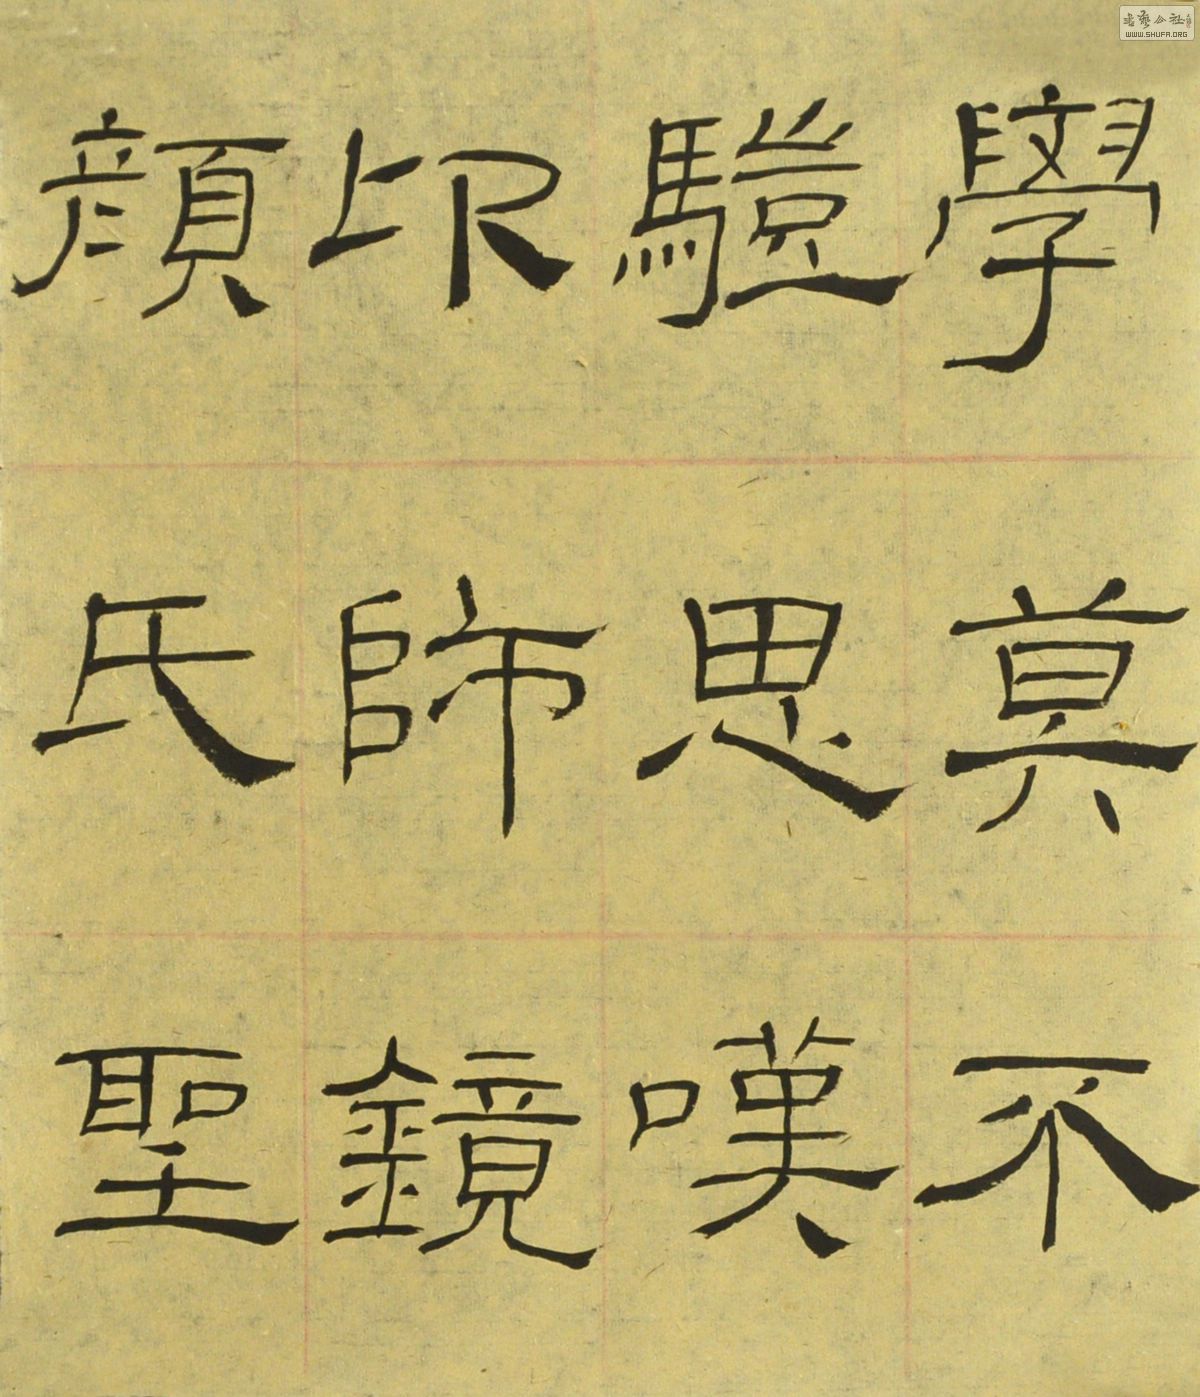 學莫不
驥思嘆
卬師鏡
顏氏聖
書藝公社
WWW.SHUFA.ORG